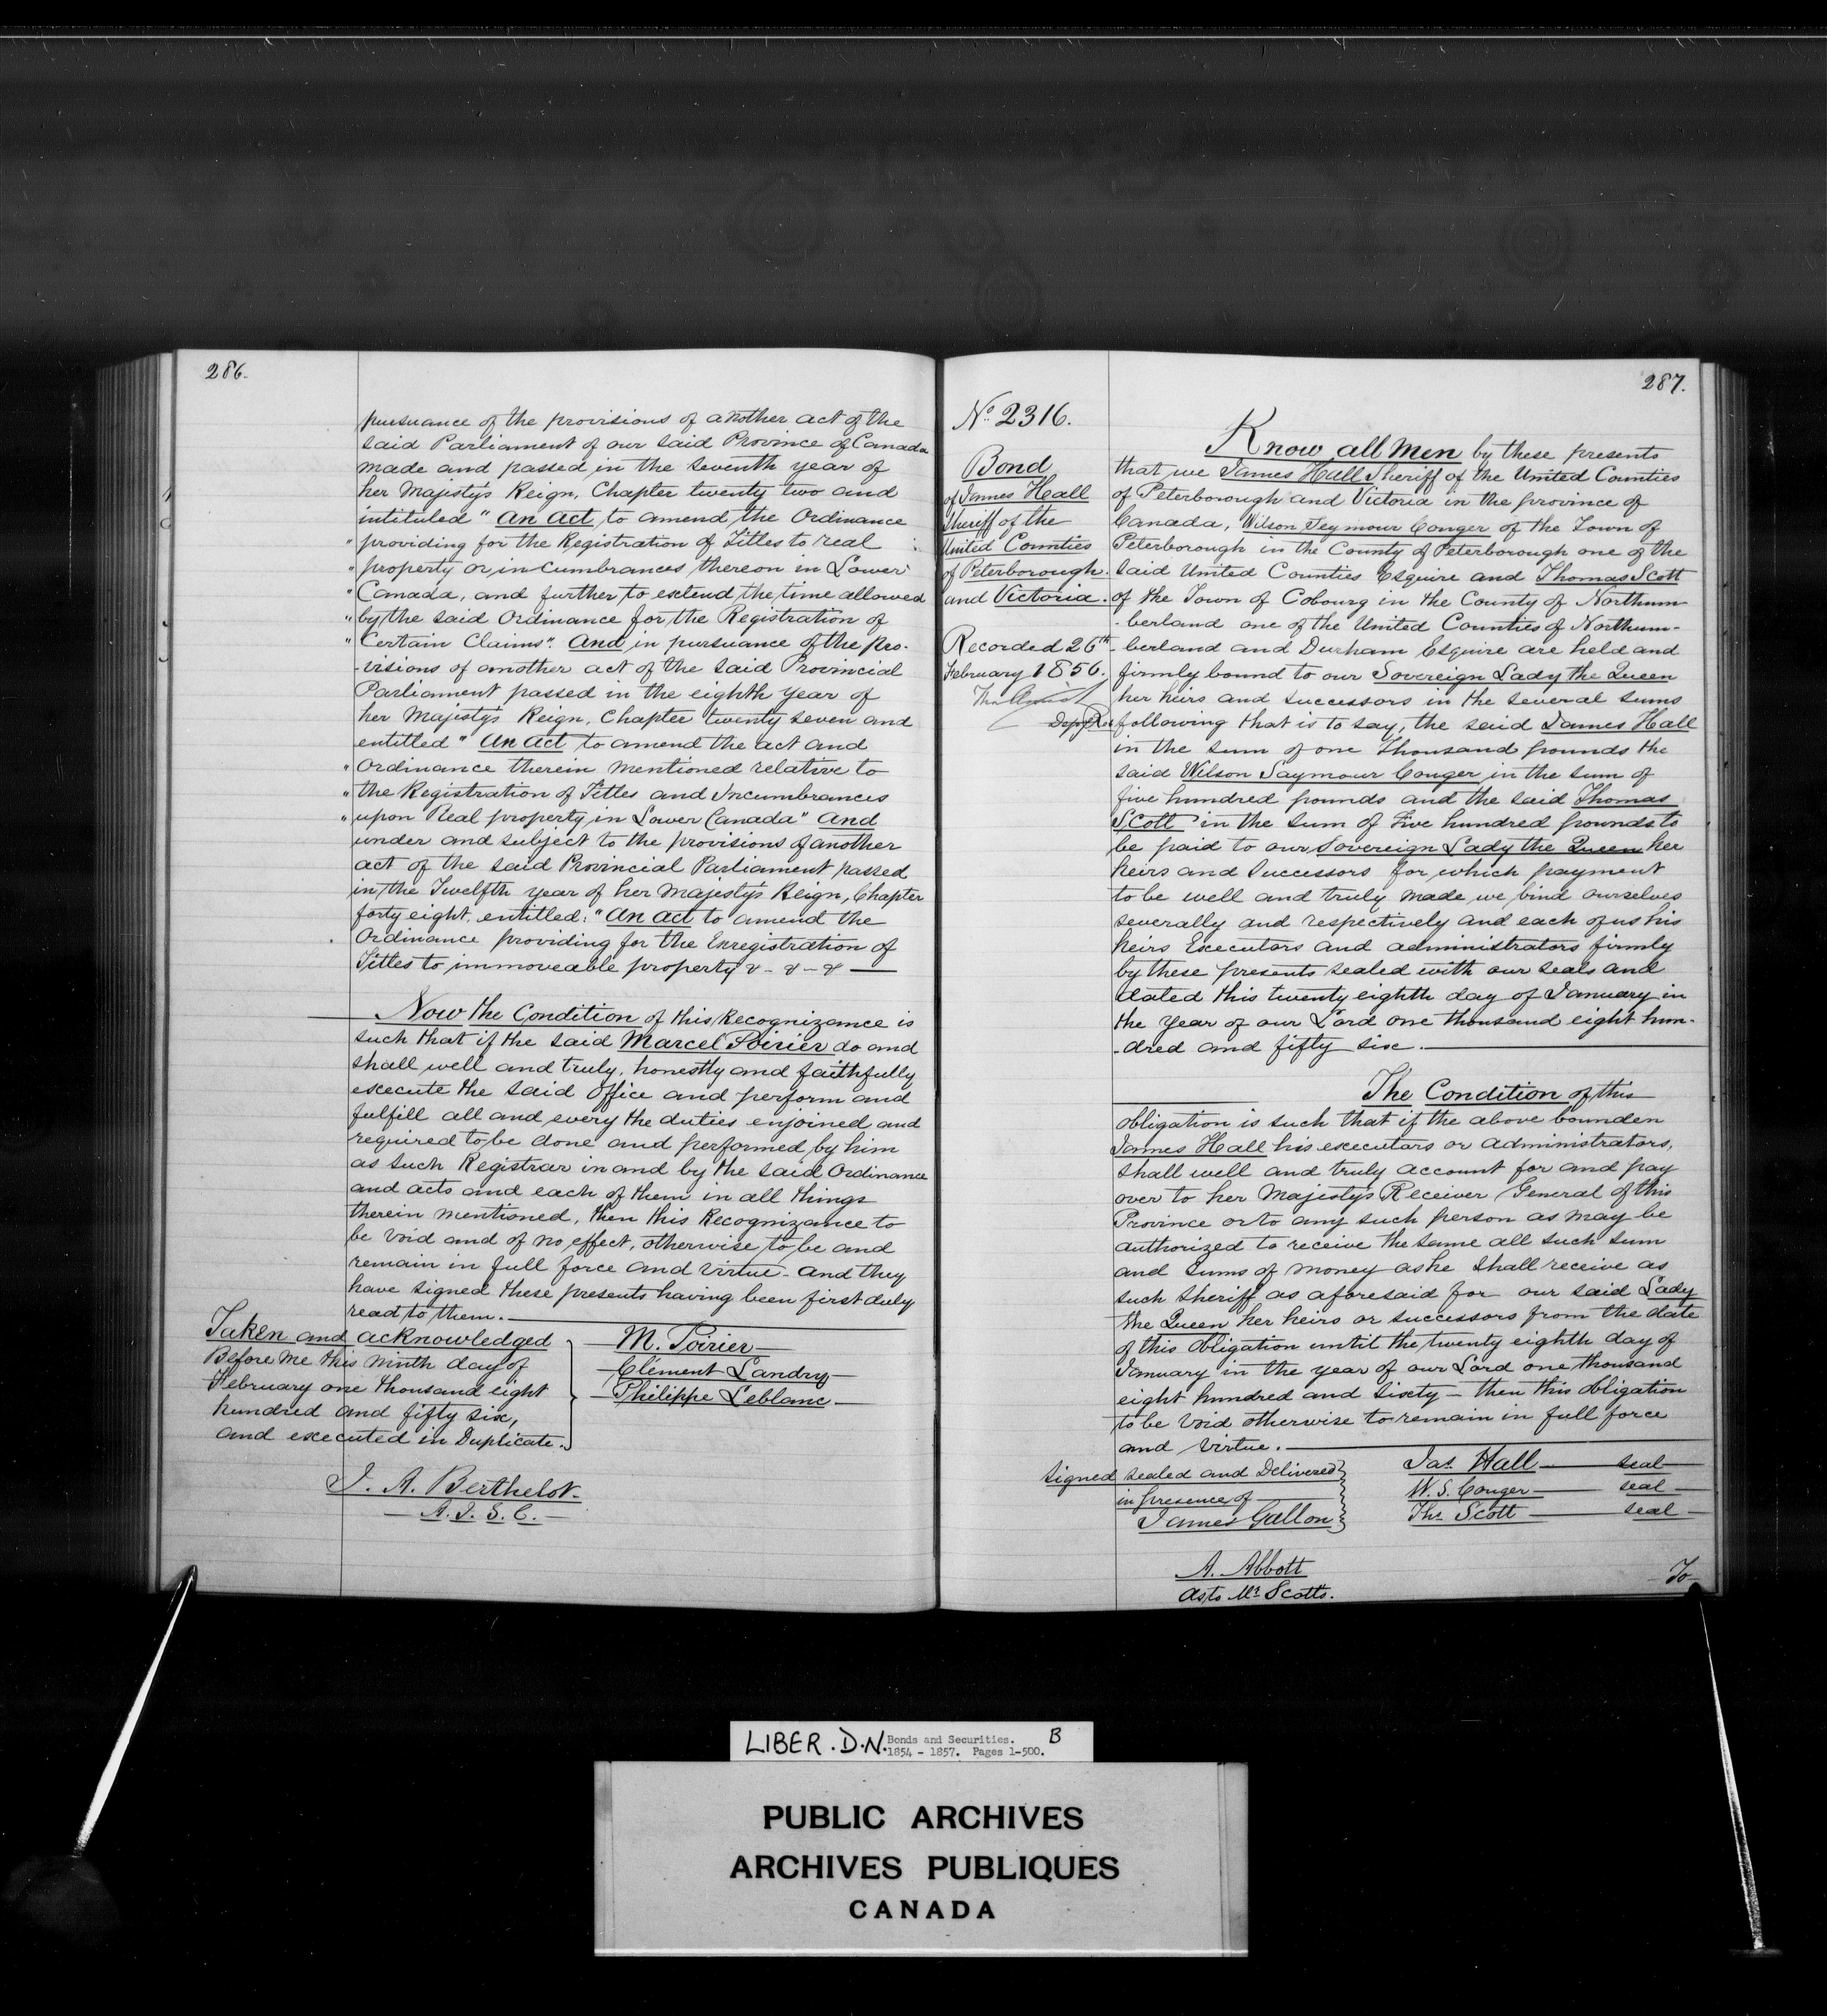 286.
pursuance of the provisions of another act of the
said Parliament of our said Province of Canada
made and passed in the seventh year of
her Majesty's Reign, Chapter twenty two and
intituled "An Act to amend the Ordinance
" providing for the Registration of Titles to real
" property or incumbrances thereon in Lower
" Canada, and further to extend the time allowed
" by the said Ordinance for the Registration of
" Certain Claims". And in pursuance of the pro-
-visions of another act of the said Provincial
Parliament passed in the eighth year of
her Majesty's Reign, Chapter twenty seven and
entitled "An Act to amend the act and
" Ordinance therein mentioned relative to
" the Registration of Titles and Incumbrances
" upon Real property in Lower Canada" And
under and subject to the provisions of another
act of the said Provincial Parliament passed
in the Twelfth year of her Majesty's Reign, Chapter
forty eight, entitled: "An Act to amend the
Ordinance providing for the Enregistration of
Titles to immoveable property & - & - & —
Now the Condition of this Recognizance is
such that if the said Marcel Poirier do and
shall well and truly, honestly and faithfully
execute the said Office and perform and
fulfill all and every the duties enjoined and
required to be done and performed by him
as such Registrar in and by the said Ordinance
and acts and each of them in all things
therein mentioned, then this Recognizance to
be void and of no effect, otherwise to be and
remain in full force and virtue - and they
have signed these presents having been first duly
read to them. —
Taken and acknowledged
Before me this ninth day of
February one thousand eight
hundred and fifty six,
and executed in Duplicate.
M. Poirier —
Clément Landry —
Philippe Leblanc —
J. A. Berthelot.
— A. J. S. C. —
287.
No. 2316.
Bond
of James Hall
Sheriff of the
United Counties
of Peterborough
and Victoria.
Recorded 26th
February 1856.
Depy Reg
Know all Men by these presents
that we James Hall Sheriff of the United Counties
of Peterborough and Victoria in the province of
Canada, Wilson Seymour Conger of the Town of
Peterborough in the County of Peterborough one of the
said United Counties Esquire and Thomas Scott
of the Town of Cobourg in the County of Northum-
-berland one of the United Counties of Northum-
-berland and Durham Esquire are held and
firmly bound to our Sovereign Lady the Queen
her heirs and successors in the several sums
following that is to say, the said James Hall
in the sum of one Thousand pounds the
said Wilson Saymour Conger in the sum of
five hundred pounds and the said Thomas
Scott in the sum of Five hundred pounds to
be paid to our Sovereign Lady the Queen her
heirs and Successors for which payment
to be well and truly made we bind ourselves
severally and respectively and each of us his
heirs Executors and administrators firmly
by these presents sealed with our seals and
dated this twenty eighth day of January in
the year of our Lord one thousand eight hun-
-dred and fifty six. —
The Condition of this
obligation is such that if the above bounden
James Hall his executors or administrators,
shall well and truly account for and pay
over to her Majesty's Receiver General of this
Province or to any such person as may be
authorized to receive the same all such sum
and sums of money as he shall receive as
such sheriff as aforesaid for our said Lady
the Queen her heirs or successors from the date
of this Obligation until the twenty eighth day of
January in the year of our Lord one thousand
eight hundred and sixty - then this obligation
to be void otherwise to remain in full force
and virtue. —
Signed sealed and Delivered
in presence of
James Gallon
Jas. Hall — seal
W. S. Conger — seal
Ths. Scott — seal
A. Abbott
as to Mr. Scotts.
To
LIBER . D.N. Bonds and Securities. B
1854 - 1857. Pages 1-500.
PUBLIC ARCHIVES
ARCHIVES PUBLIQUES
CANADA